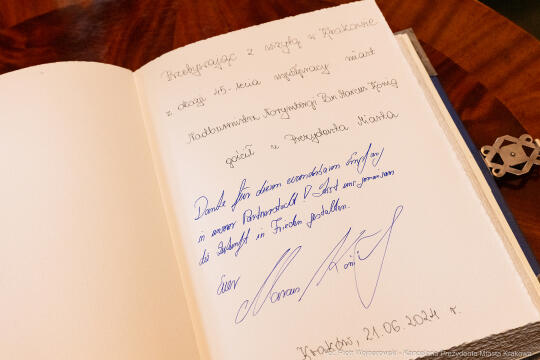 Przebywając z wizytą w Krakowie
z okazji 45-lecia współpracy miast
Nadburmistrz Norymbergi Pan Marcus König
gościł u Prezydenta Miasta
Danke für diesen wunderbaren Empfang
in unserer Partnerstadt! Lasst uns gemeinsam
die Zukunft in Frieden gestalten.
Euer
Marcus König
Kraków, 21.06.2024 r.
Piotr Wojnarowski - Kancelaria Prezydenta Miasta Krakowa